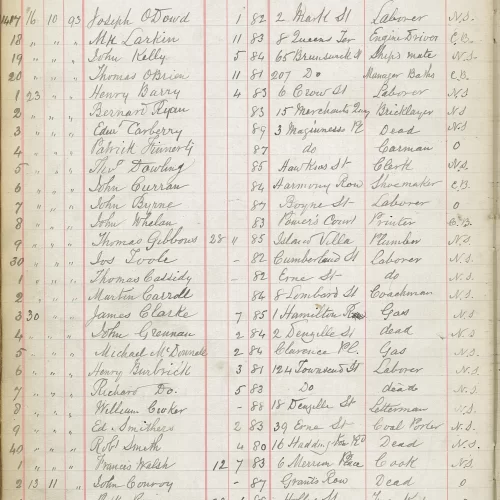 1417 16 10 93 Joseph O'Dowd 1 82 2 Mark St Laborer N.S.
18 " " " Mk Larkin 11 83 8 Queens Ter Engine Driver C.B.
19 " " " John Kelly 5 84 65 Brunswick St Ship's mate N.S.
20 " " " Thomas O'Brien 11 81 207 Do Manager Baths C.B.
1 23 " " Henry Barry 4 83 6 Crow St Laborer N.S
2 " " " Bernard Ryan 83 15 Merchants Quay Bricklayer N.S
3 " " " Edwd Carberry 89 3 Maginness Pl Dead N.S.
4 " " " Patrick 87 do Carman O
5 " " " Thos Dowling 85 Hawkins St Clerk N.S.
6 " " " John Curran 84 Harmony Row Shoemaker C.B.
7 " " " John Byrne 87 Boyne St Laborer O
8 " " " John Whelan 83 Power's Court Printer C.B.
9 " " " Thomas Gibbons 28 " 85 Island Villa Plumber N.S.
30 " " " Jos Toole - 82 Cumberland St Laborer N.S.
1 " " " Thomas Cassidy - 82 Erne St do N.S.
2 " " " Martin Carroll 84 8 Lombard St Coachman N.S.
3 30 " " James Clarke 7 85 1 Hamilton Row Gas N.S.
4 " " " John Grennan 2 84 2 Denzille St dead N.S.
5 " " " Michael McDonnell 2 84 Clarence Pl. Gas N.S.
6 " " " Henry Burbrick 3 81 124 Townsend St Laborer N.S.
7 " " " Richard Do. 5 83 Do dead N.S.
8 " " " William Croker - 88 18 Denzille St Letterman N.S.
9 " " " Ed. Smithers 2 83 39 Erne St Coal Porter N.S.
40 " " " Rob Smith 4 80 16 Hadding Dead N.S.
1 " " " Francis Walsh 12 7 83 6 Merrion Place Cook N.S.
2 13 11 " John Conroy - 87 Grants Row Dead O